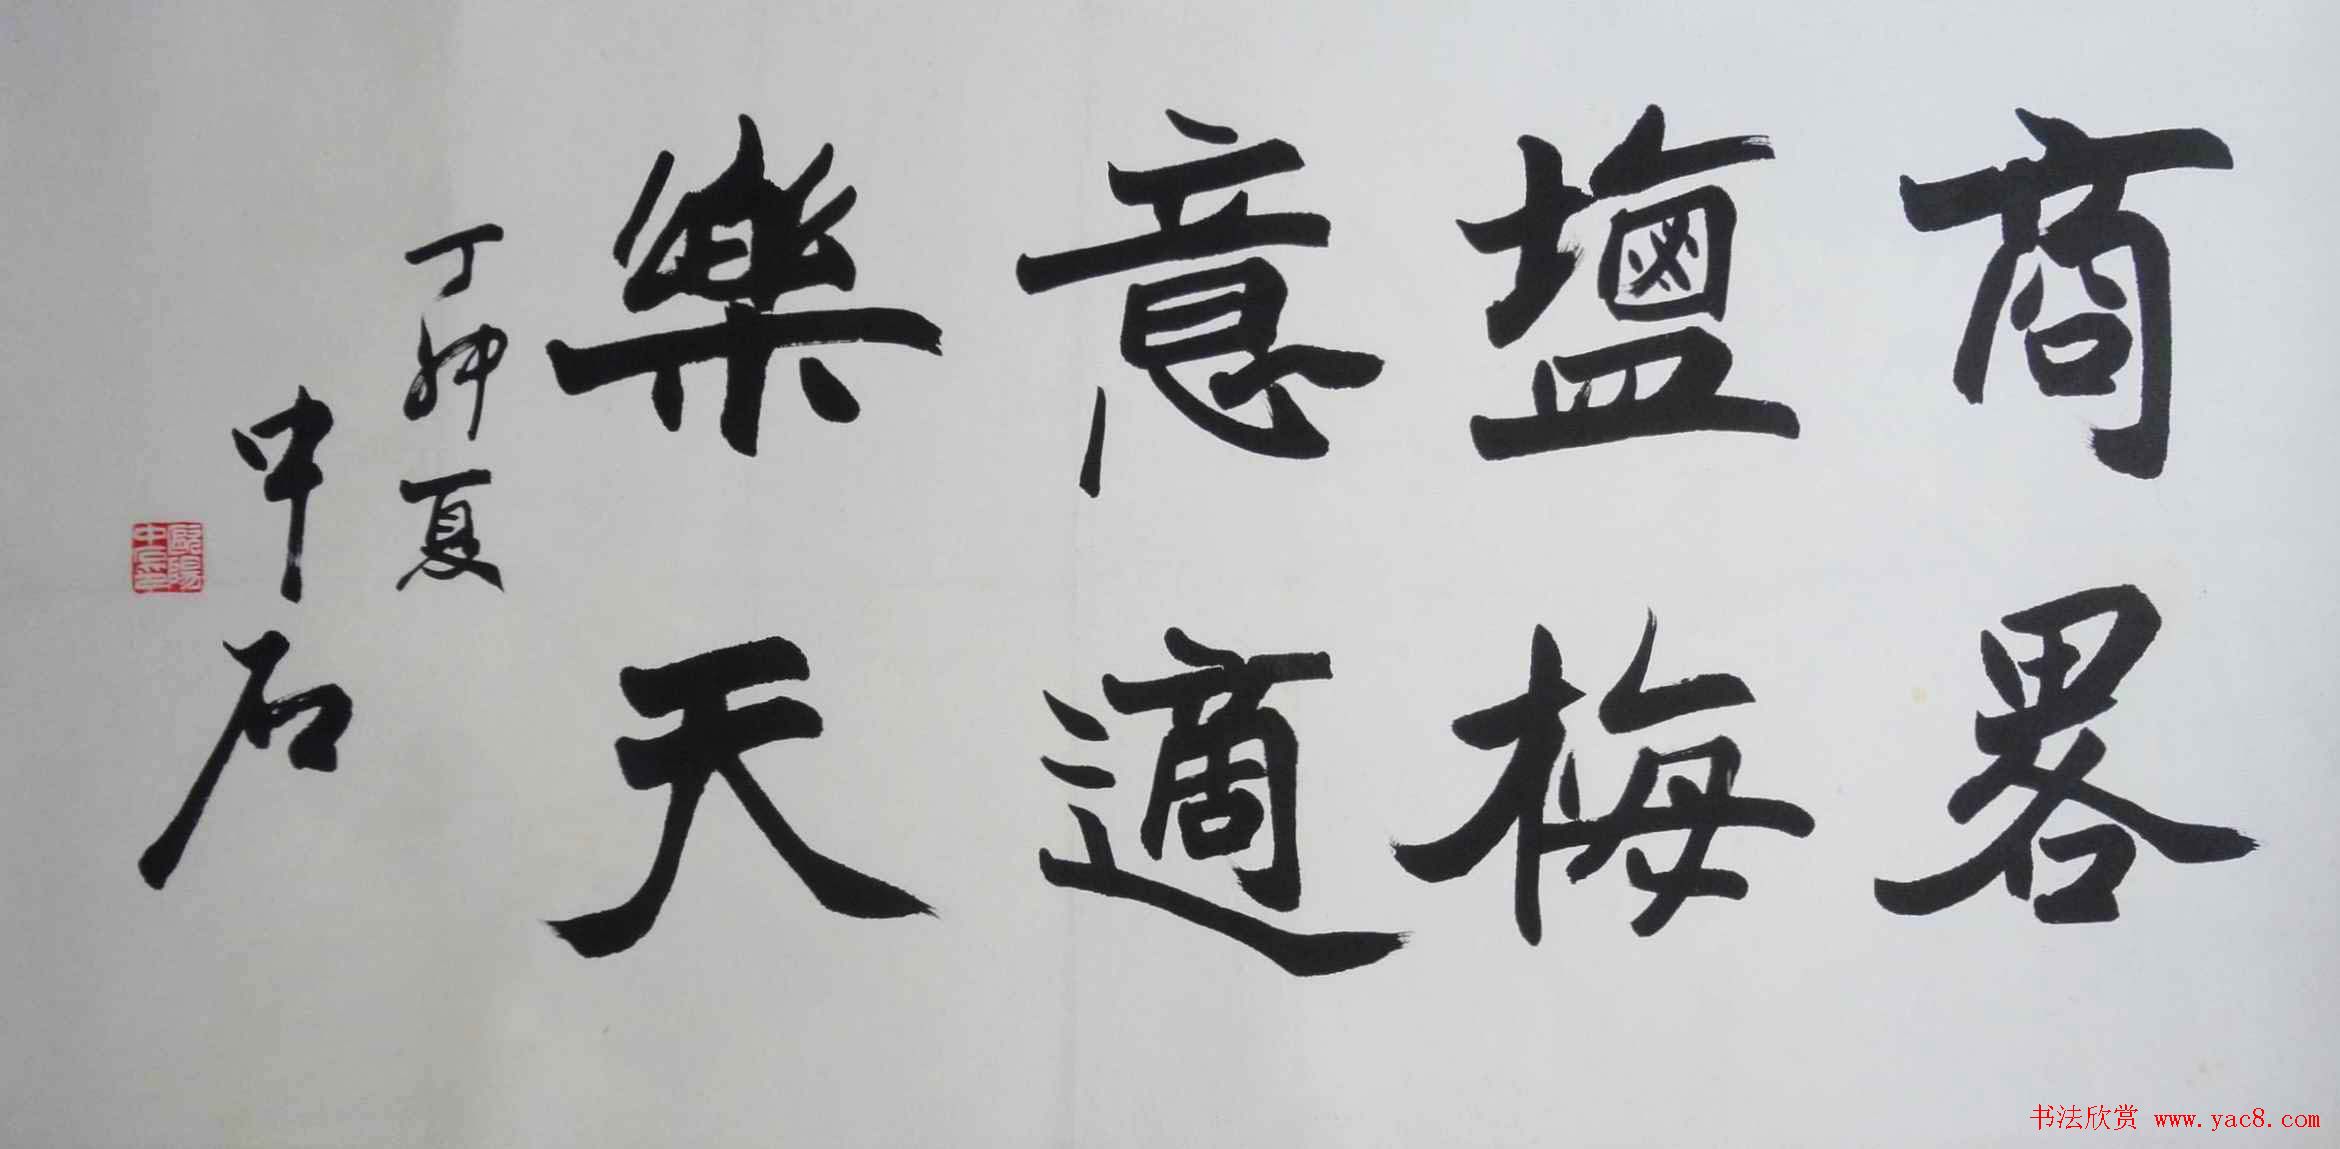 商畧
塩梅
意適
樂天
丁卯夏
中石
歐陽中石
书法欣赏 www.yac8.com